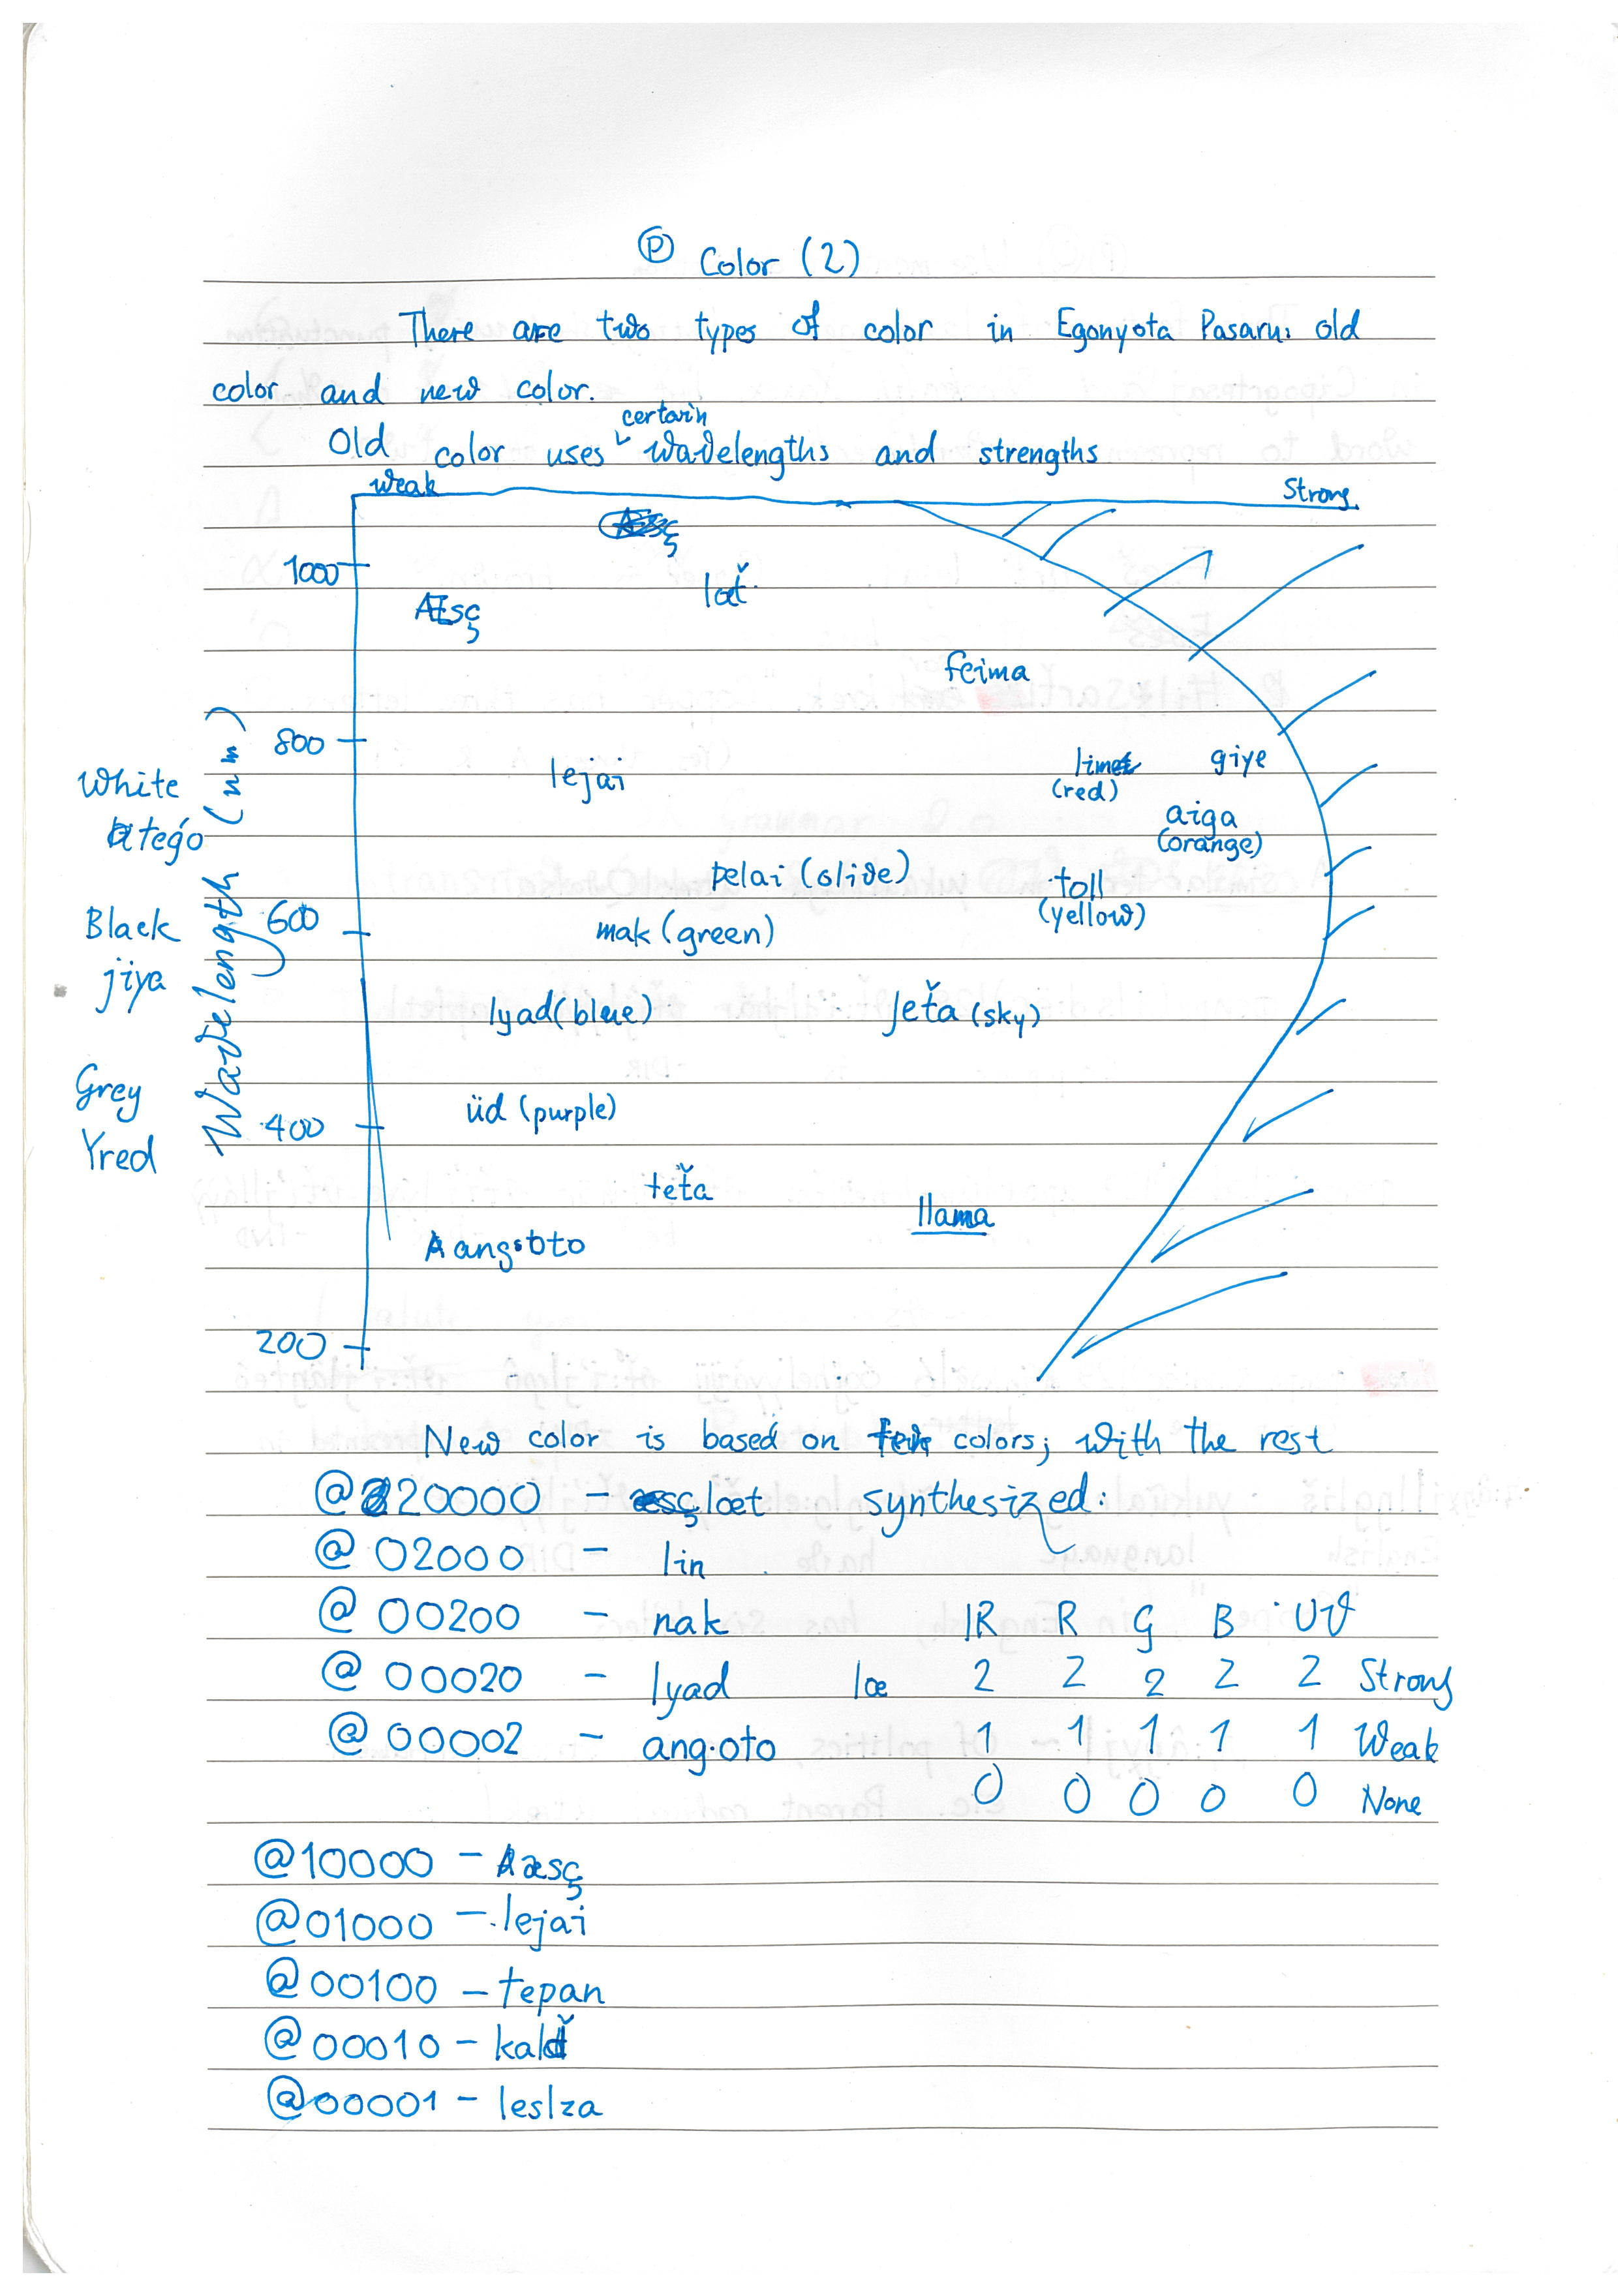 Ⓟ Color (2)
There are two types of color in Egonyota Pasaru: old
color and new color.
certain
Old color uses wavelengths and strengths
Weak Strong
1000
Æsç
feima
800
lejai
giye
(red)
White
aiga
(orange)
Wavelength (nm)
pelai (olive)
toll
(yellow)
600
mak (green)
Black
jiya
lyad (blue)
Jeťa (sky)
Grey
üd (purple)
400
Yred
teťa
llama
ang·oto
200
New color is based on colors; with the rest
@20000 - lœt synthesized:
@02000 - lin
@00200 - nak IR R G B UV
@00020 - lyad lœ 2 2 2 2 2 Strong
@00002 - ang·oto 1 1 1 1 1 Weak
0 0 0 0 0 None
@10000 - æsç
@01000 - lejai
@00100 - tepan
@00010 -
@00001 - leslza